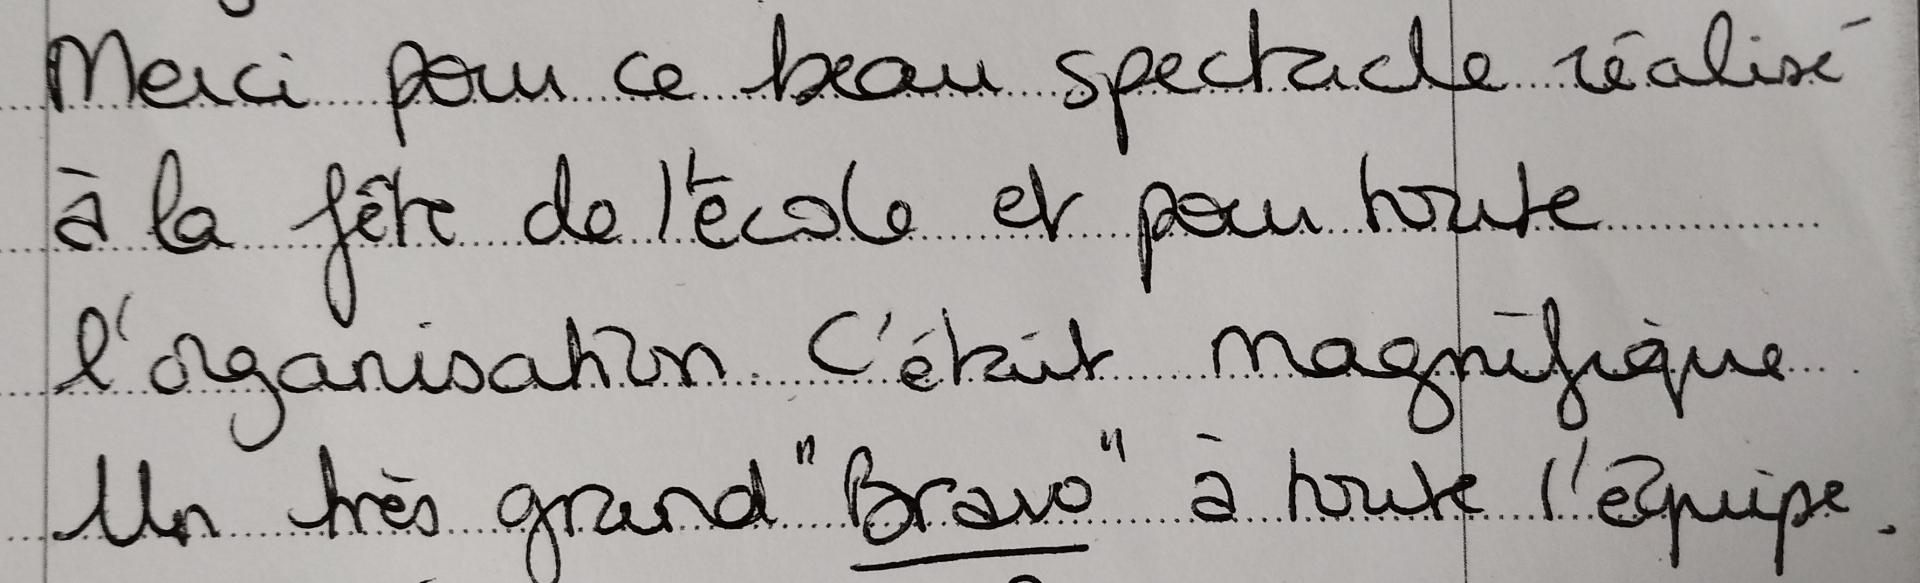 Merci pour ce beau spectacle réalisé
à la fête de l'école et pour toute
l'organisation. C'était magnifique
Un très grand "Bravo" à toute l'équipe.